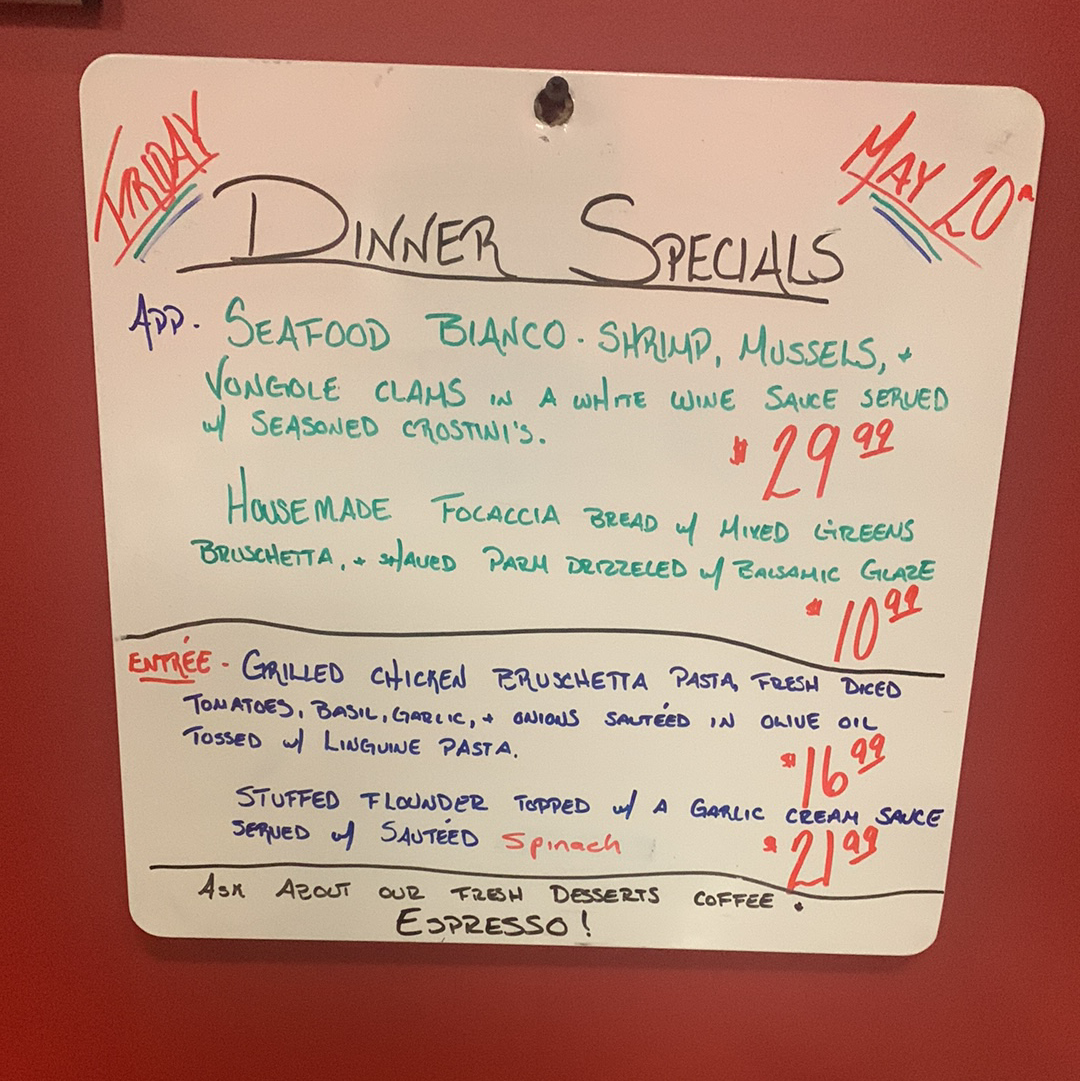 FRIDAY
MAY 20th
DINNER SPECIALS
APP. SEAFOOD BIANCO - SHRIMP, MUSSELS, +
VONGOLE CLAMS IN A WHITE WINE SAUCE SERVED
w/ SEASONED CROSTINI'S.
$29.99
HOUSEMADE FOCACCIA BREAD w/ MIXED GREENS
BRUSCHETTA, + SHAVED PARM DRIZZELED w/ BALSAMIC GLAZE
$10.99
ENTRÉE - GRILLED CHICKEN BRUSCHETTA PASTA, FRESH DICED
TOMATOES, BASIL, GARLIC, + ONIONS SAUTÉED IN OLIVE OIL
TOSSED w/ LINGUINE PASTA.
$16.99
STUFFED FLOUNDER TOPPED w/ A GARLIC CREAM SAUCE
SERVED w/ SAUTÉED Spinach
$21.99
ASK ABOUT OUR FRESH DESSERTS COFFEE .
ESPRESSO!